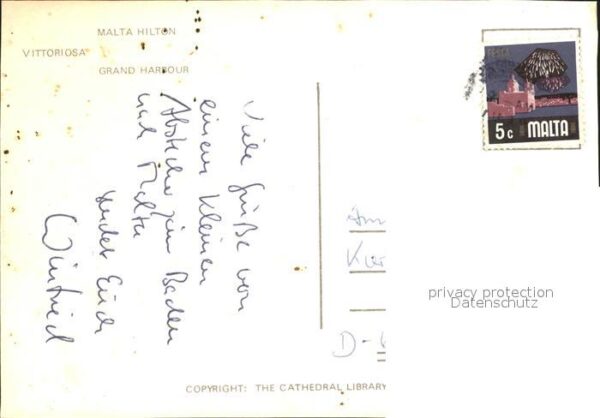 MALTA HILTON
VITTORIOSA
GRAND HARBOUR
Viele Grüße von
einem kleinen
Abstecher zum Baden
nach Malta
sendet Euch
Winfried
5c MALTA
D-
privacy protection
Datenschutz
COPYRIGHT: THE CATHEDRAL LIBRARY